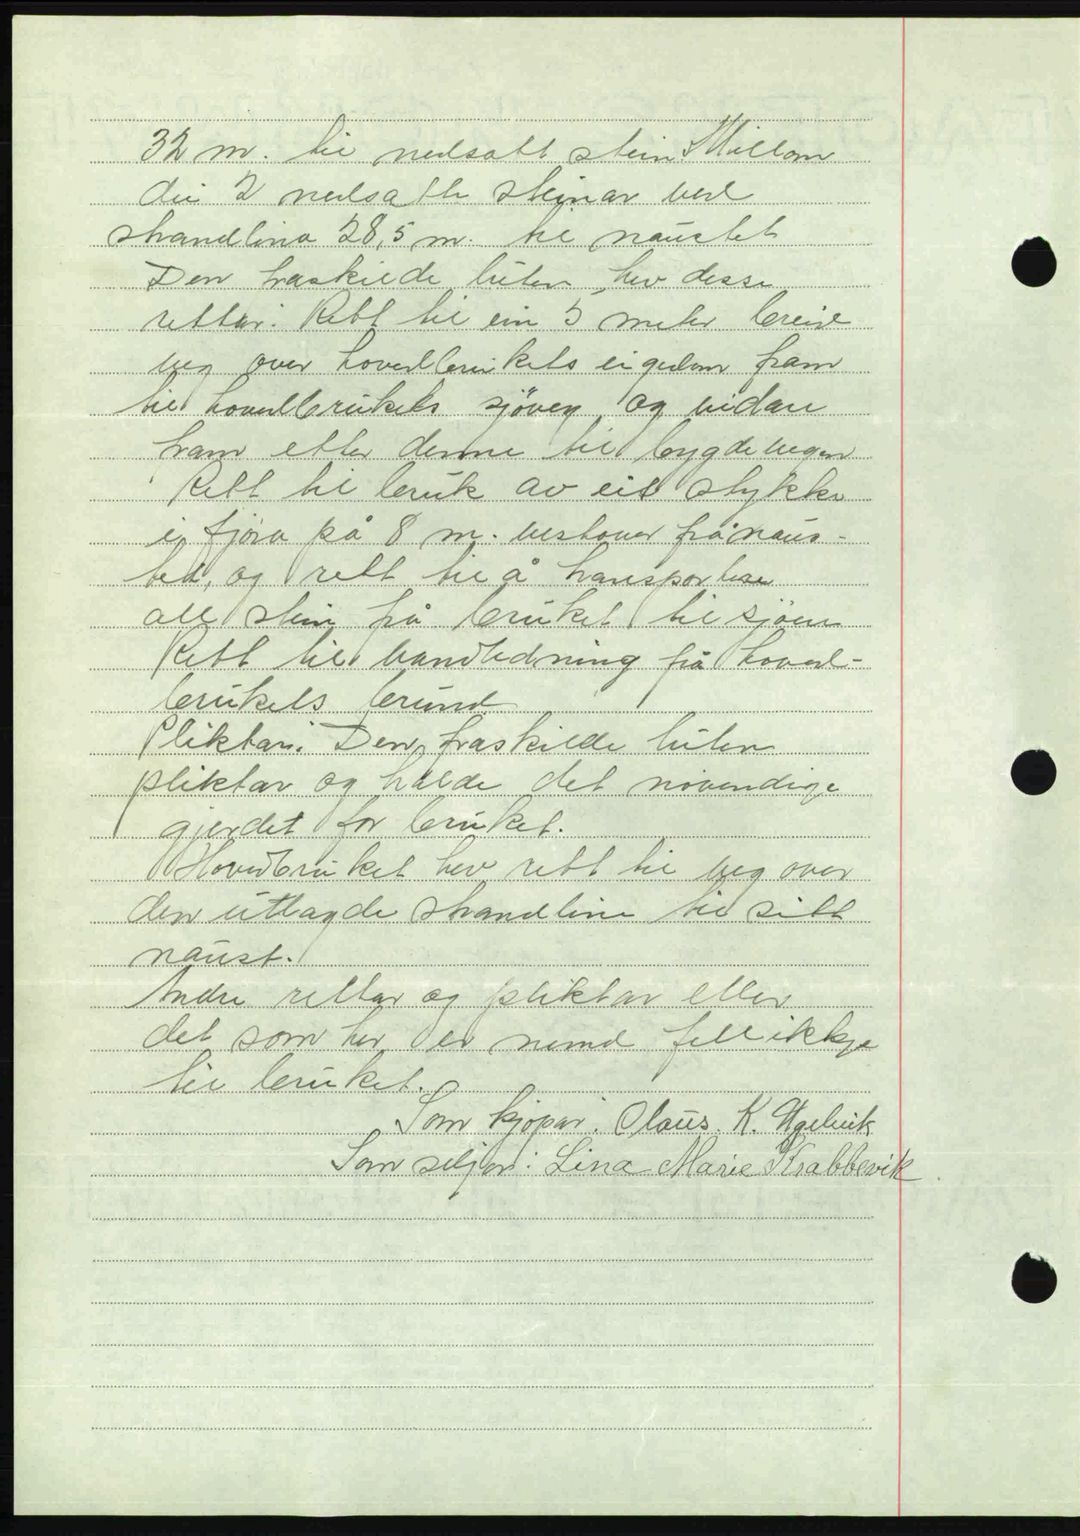 32 m. til nedsatt stein. Millom
dei 2 nedsatte steinar ved
strandlina 28,5 m. til naustet
Den fraskilde luten hev desse
rettar: Rett til ein 5 meter breid
veg over hovedbrukets eigedom fram
til hovedbrukets sjøveg, og vidare
fram etter denne til bygdevegen
Rett til bruk av eit stykke
i fjøra på 8 m. vestover frå naus-
tet, og rett til å transportere
all stein på bruket til sjøen
Rett til vandledning frå hoved-
brukets brund
Pliktar: Den fraskilde luten
pliktar og halde det nøvendige
gjerdet for bruket.
Hovedbruket hev rett til veg over
den utlagde strandline til sitt
naust.
Andre rettar og pliktar eller
det som her er nemd fell ikkje
til bruket.
Som kjøpar: Olaus. K.
Som seljar: Lina Marie Krabbevik